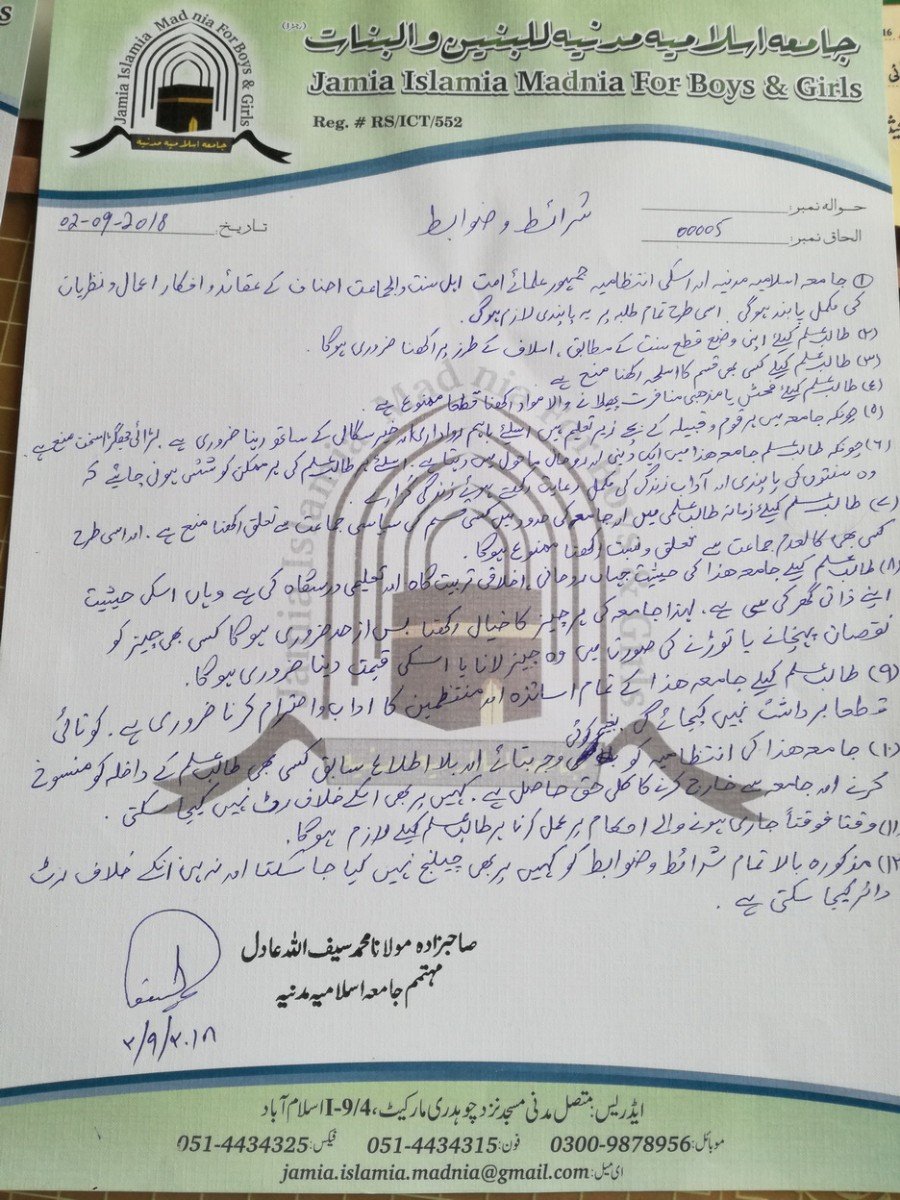 جامعہ اسلامیہ مدنیہ للبنین والبنات (رجسٹرڈ)
Jamia Islamia Madnia For Boys & Girls
Reg. # RS/ICT/552
Jamia Islamia Madnia For Boys & Girls
جامعہ اسلامیہ مدنیہ
حوالہ نمبر:
الحاق نمبر: 00005
تاریخ: 02-09-2018
شرائط و ضوابط
(۱) جامعہ اسلامیہ مدنیہ اور اسکی انتظامیہ جمہور علمائے امت اہل سنت والجماعت احناف کے عقائد و افکار اعمال و نظریات
کی مکمل پابند ہوگی۔ اسی طرح تمام طلبہ پر یہ پابندی لازم ہوگی۔
(۲) طالبعلم کیلئے اپنی وضع قطع سنت کے مطابق، اسلاف کے طرز پر رکھنا ضروری ہوگا۔
(۳) طالبعلم کیلئے کسی بھی قسم کا اسلحہ رکھنا منع ہے
(٤) طالبعلم کیلئے فحش یا مذہبی منافرت پھیلانے والا مواد رکھنا قطعا ممنوع ہے۔
(۵) چونکہ جامعہ میں ہر قوم و قبیلہ کے بچے زیر تعلیم ہیں اسلئے باہم رواداری اور خیر سگالی کے ساتھ رہنا ضروری ہے۔ لڑائی جھگڑا سخت منع ہے
(٦) چونکہ طالبعلم جامعہ ھذا میں ایک دینی اور روحانی ماحول میں رہتا ہے۔ اسلئے ہر طالبعلم کی ہر ممکن کوشش ہونی چاہئے کہ
وہ سنتوں کی پابندی اور آداب زندگی کی مکمل رعایت رکھتے ہوئے زندگی گزارے۔
(۷) طالبعلم کیلئے زمانہ طالبعلمی میں اور جامعہ کی حدود میں کسی قسم کی سیاسی جماعت سے تعلق رکھنا منع ہے۔ اور اسی طرح
کسی بھی کالعدم جماعت سے تعلق و نسبت رکھنا ممنوع ہوگا۔
(۸) طالبعلم کیلئے جامعہ ھذا کی حیثیت جہاں روحانی، اخلاقی تربیت گاہ اور تعلیمی درسگاہ کی ہے وہاں اسکی حیثیت
اپنے ذاتی گھر کی سی ہے۔ لہذا جامعہ کی ہر چیز کا خیال رکھنا بس از حد ضروری ہوگا کسی بھی چیز کو
نقصان پہنچانے یا توڑنے کی صورت میں وہ چیز لانا یا اسکی قیمت دینا ضروری ہوگا۔
(۹) طالبعلم کیلئے جامعہ ھذا کے تمام اساتذہ اور منتظمین کا ادب و احترام کرنا ضروری ہے۔ کوتائی
قطعا برداشت نہیں کیجائے گی
(۱۰) جامعہ ھذا کی انتظامیہ کو بغیر کوئی وجہ بتائے اور بلا اطلاع سابق کسی بھی طالبعلم کے داخلہ کو منسوخ
کرنے اور جامعہ سے خارج کرنے کا کلی حق حاصل ہے۔ کہیں پر بھی انکے خلاف رٹ نہیں کیجا سکتی۔
(۱۱) وقتا فوقتاً جاری ہونے والے احکام پر عمل کرنا ہر طالبعلم کیلئے لازم ہوگا۔
(۱۲) مذکورہ بالا تمام شرائط و ضوابط کو کہیں پر بھی چیلنج نہیں کیا جا سکتا اور نہ ہی انکے خلاف رٹ
دائر کیجا سکتی ہے۔
صاحبزادہ مولانا محمد سیف اللہ عادل
مہتمم جامعہ اسلامیہ مدنیہ
۲/۹/۲۰۱۸
ایڈریس: متصل مدنی مسجد نزد چوہدری مارکیٹ، I-9/4 اسلام آباد
موبائل: 0300-9878956 فون: 051-4434315 فیکس: 051-4434325
ای میل: jamia.islamia.madnia@gmail.com